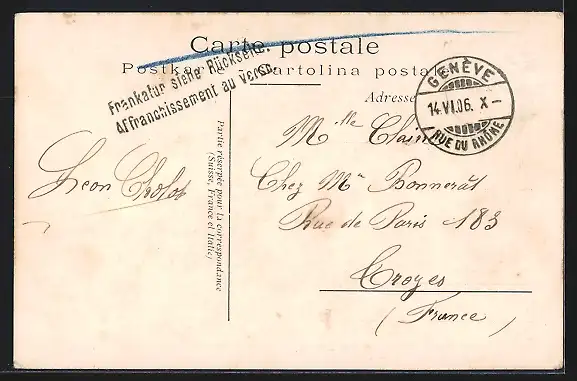 Carte postale
Postkarte Cartolina postale
Frankatur siehe Rückseite.
Affranchissement au verso.
Adresse
GENÈVE
14.VI.06. X–
RUE DU RHÔNE
Partie réservée pour la correspondance
(Suisse, France et Italie)
Léon
Mlle Claire
Chez Mr Bonnerât
Rue de Paris 183
Troyes
(France)